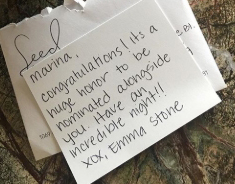 Seed
marina,
congratulations! its a
huge honor to be
nominated alongside
you. Have an
incredible night!!
xox, Emma Stone